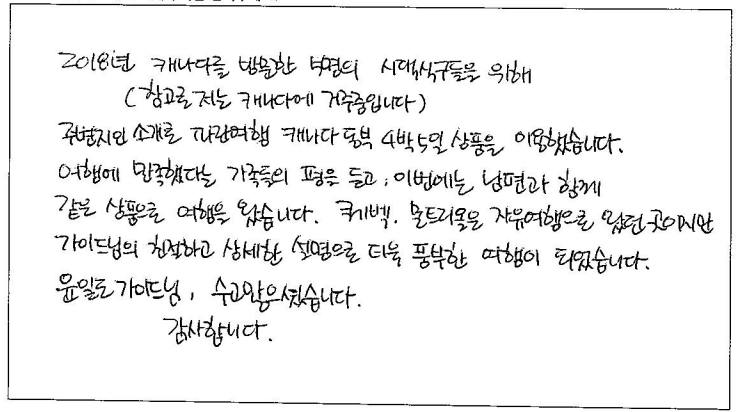 2018년 캐나다를 방문한 넉명의 시댁식구들을 위해
(참고로 저는 캐나다에 거주중입니다)
주변지인 소개로 파란여행 캐나다 동부 4박5일 상품을 이용했습니다.
여행에 만족했다는 가족들의 평을 듣고, 이번에는 남편과 함께
같은 상품으로 여행을 왔습니다. 퀘벡, 몬트리올을 자유여행으로 왔던 곳이지만
가이드님의 친절하고 상세한 설명으로 더욱 풍부한 여행이 되었습니다.
윤일도 가이드님, 수고많으셨습니다.
감사합니다.